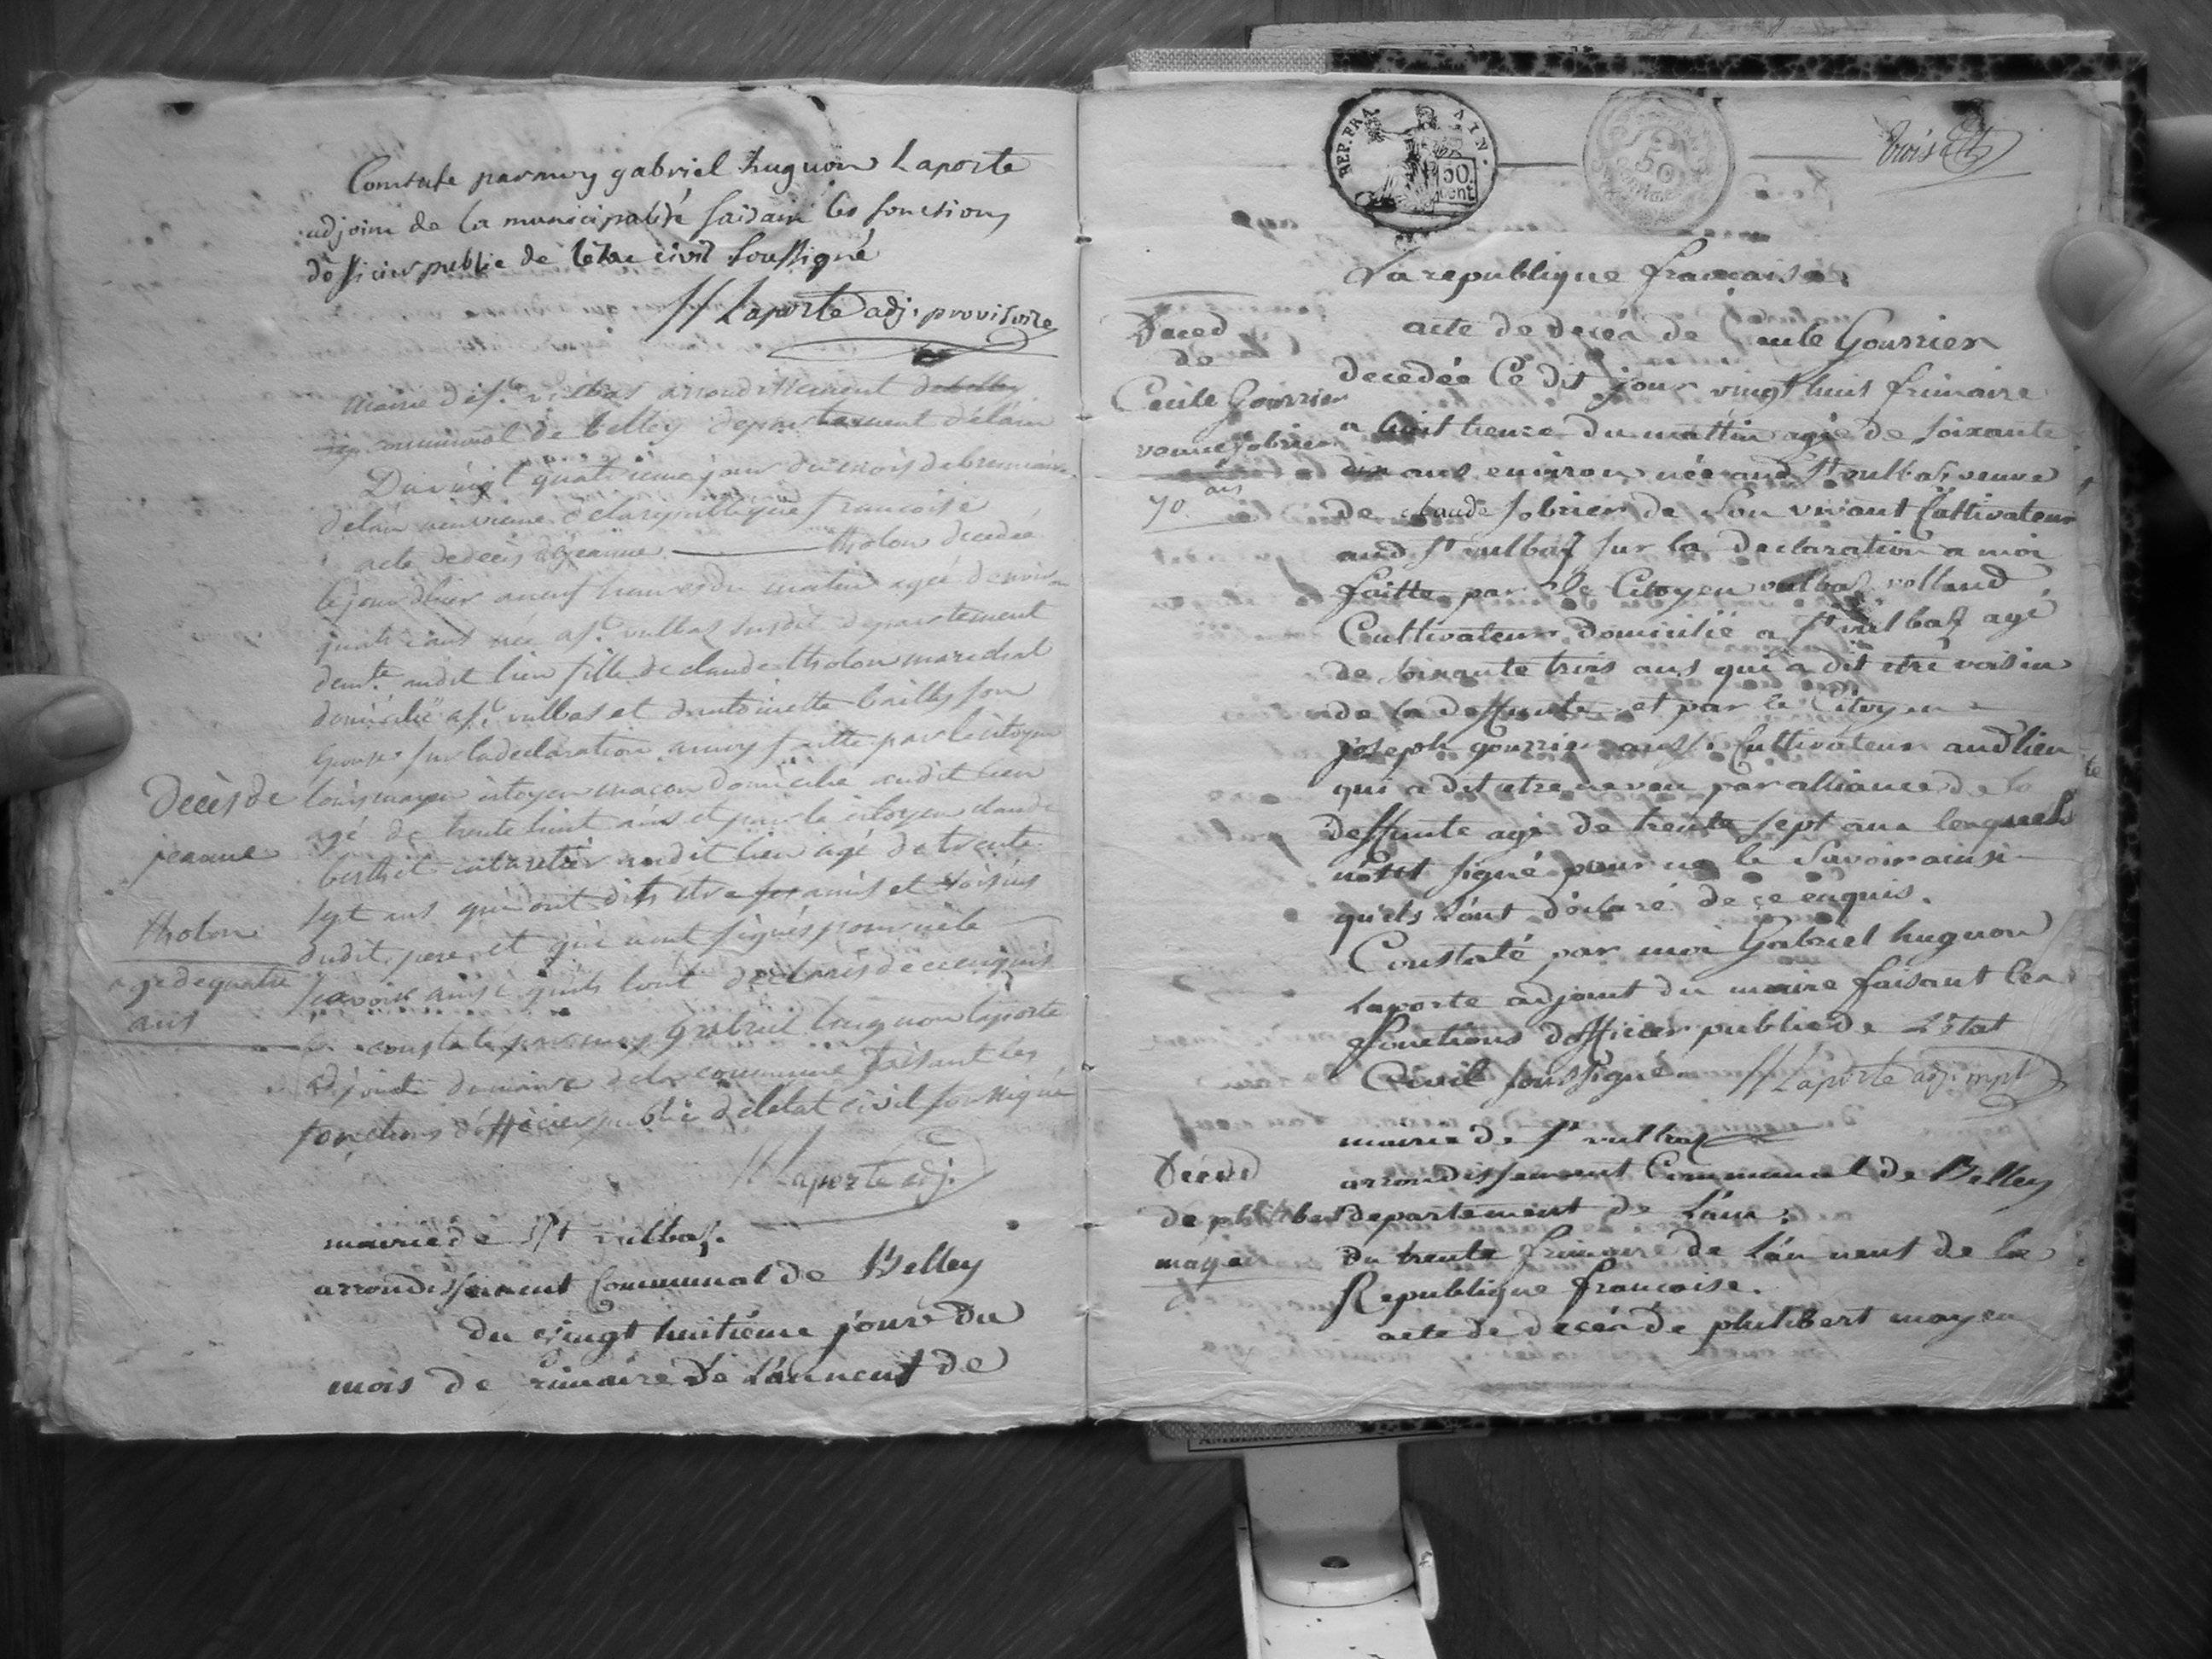 Constate par moy gabriel huguon Laporte
adjoint de la municipalité faisant les fonctions
d'officier public de létat civil Soussigné
H Laporte adj. provisoire
Mairie de st. vulbas arrondissement de belley
communal de belley departement délain
Du vingt quatrieme jour du mois de brumaire
delan neuvieme de la republique francoise
acte de decès de jeanne tholon decedée
le jour dhier a neuf heures du matin agée denviron
quatre ans née a st. vulbas susdit departement
audit lieu fille de claude tholon marechal
domicilié a st. vulbas et dantoinette bailly son
epouse sur la declaration a moy faitte par le citoyen
Decès de
jeanne
tholon
age de quatre
ans
louis mayen citoyen macon domicilié audit lieu
agé de trente huit ans et par le citoyen claude
berthet cabaretier audit lieu agé de trente
sept ans qui ont dit etre amis et voisins
dudit pere et qui n'ont signés pour ne le
scavoir ainsi quils l'ont declarés de ce enquis
constaté par moy gabriel huguon laporte
adjoint du maire de la commune faisant les
fonctions d'officier public de letat civil soussigné
H Laporte adj.
mairie de St vulbas.
arrondissement Communal de Belley
du vingt huitiéme jour du
mois de frimaire de L'an neuf de
REP. FRA. AIN.
50 cent
50
trois
La republique francaise.
Deced
de
Cecile Gourrier
veuve jobrier
70 ans
acte de decés de Cecile Gourrier
decedée Ce dit jour vingt huit frimaire
a huit heure du mattin agée de soixante
dix ans environ née aud St vulbas veuve
de claude jobrier de Son vivant Cultivateur
aud St vulbas sur la declaration a moi
faitte par le Citoyen vulbas volland
Cultivateur domicilié a St vulbas agé
de soixante trois ans qui a dit etre voisin
de la deffunte et par le Citoyen
joseph gourrier aussi Cultivateur aud lieu
qui a dit etre neveu par alliance de la
deffunte agé de trente sept ans lesquels
n'ont signé pour ne le Savoir ainsi
qu'ils l'ont déclaré de ce enquis.
Constaté par moi Gabriel huguon
Laporte adjoint du maire faisant les
fonctions d'officier public de L'Etat
Civil soussigné H Laporte adj. mpl
mairie de St vulbas
Déced
de philibert
mayen
arrondissement Communal de Belley
departement de L'ain:
Du trente frimaire de L'an neuf de la
Republique francoise.
acte de decés de philibert mayen